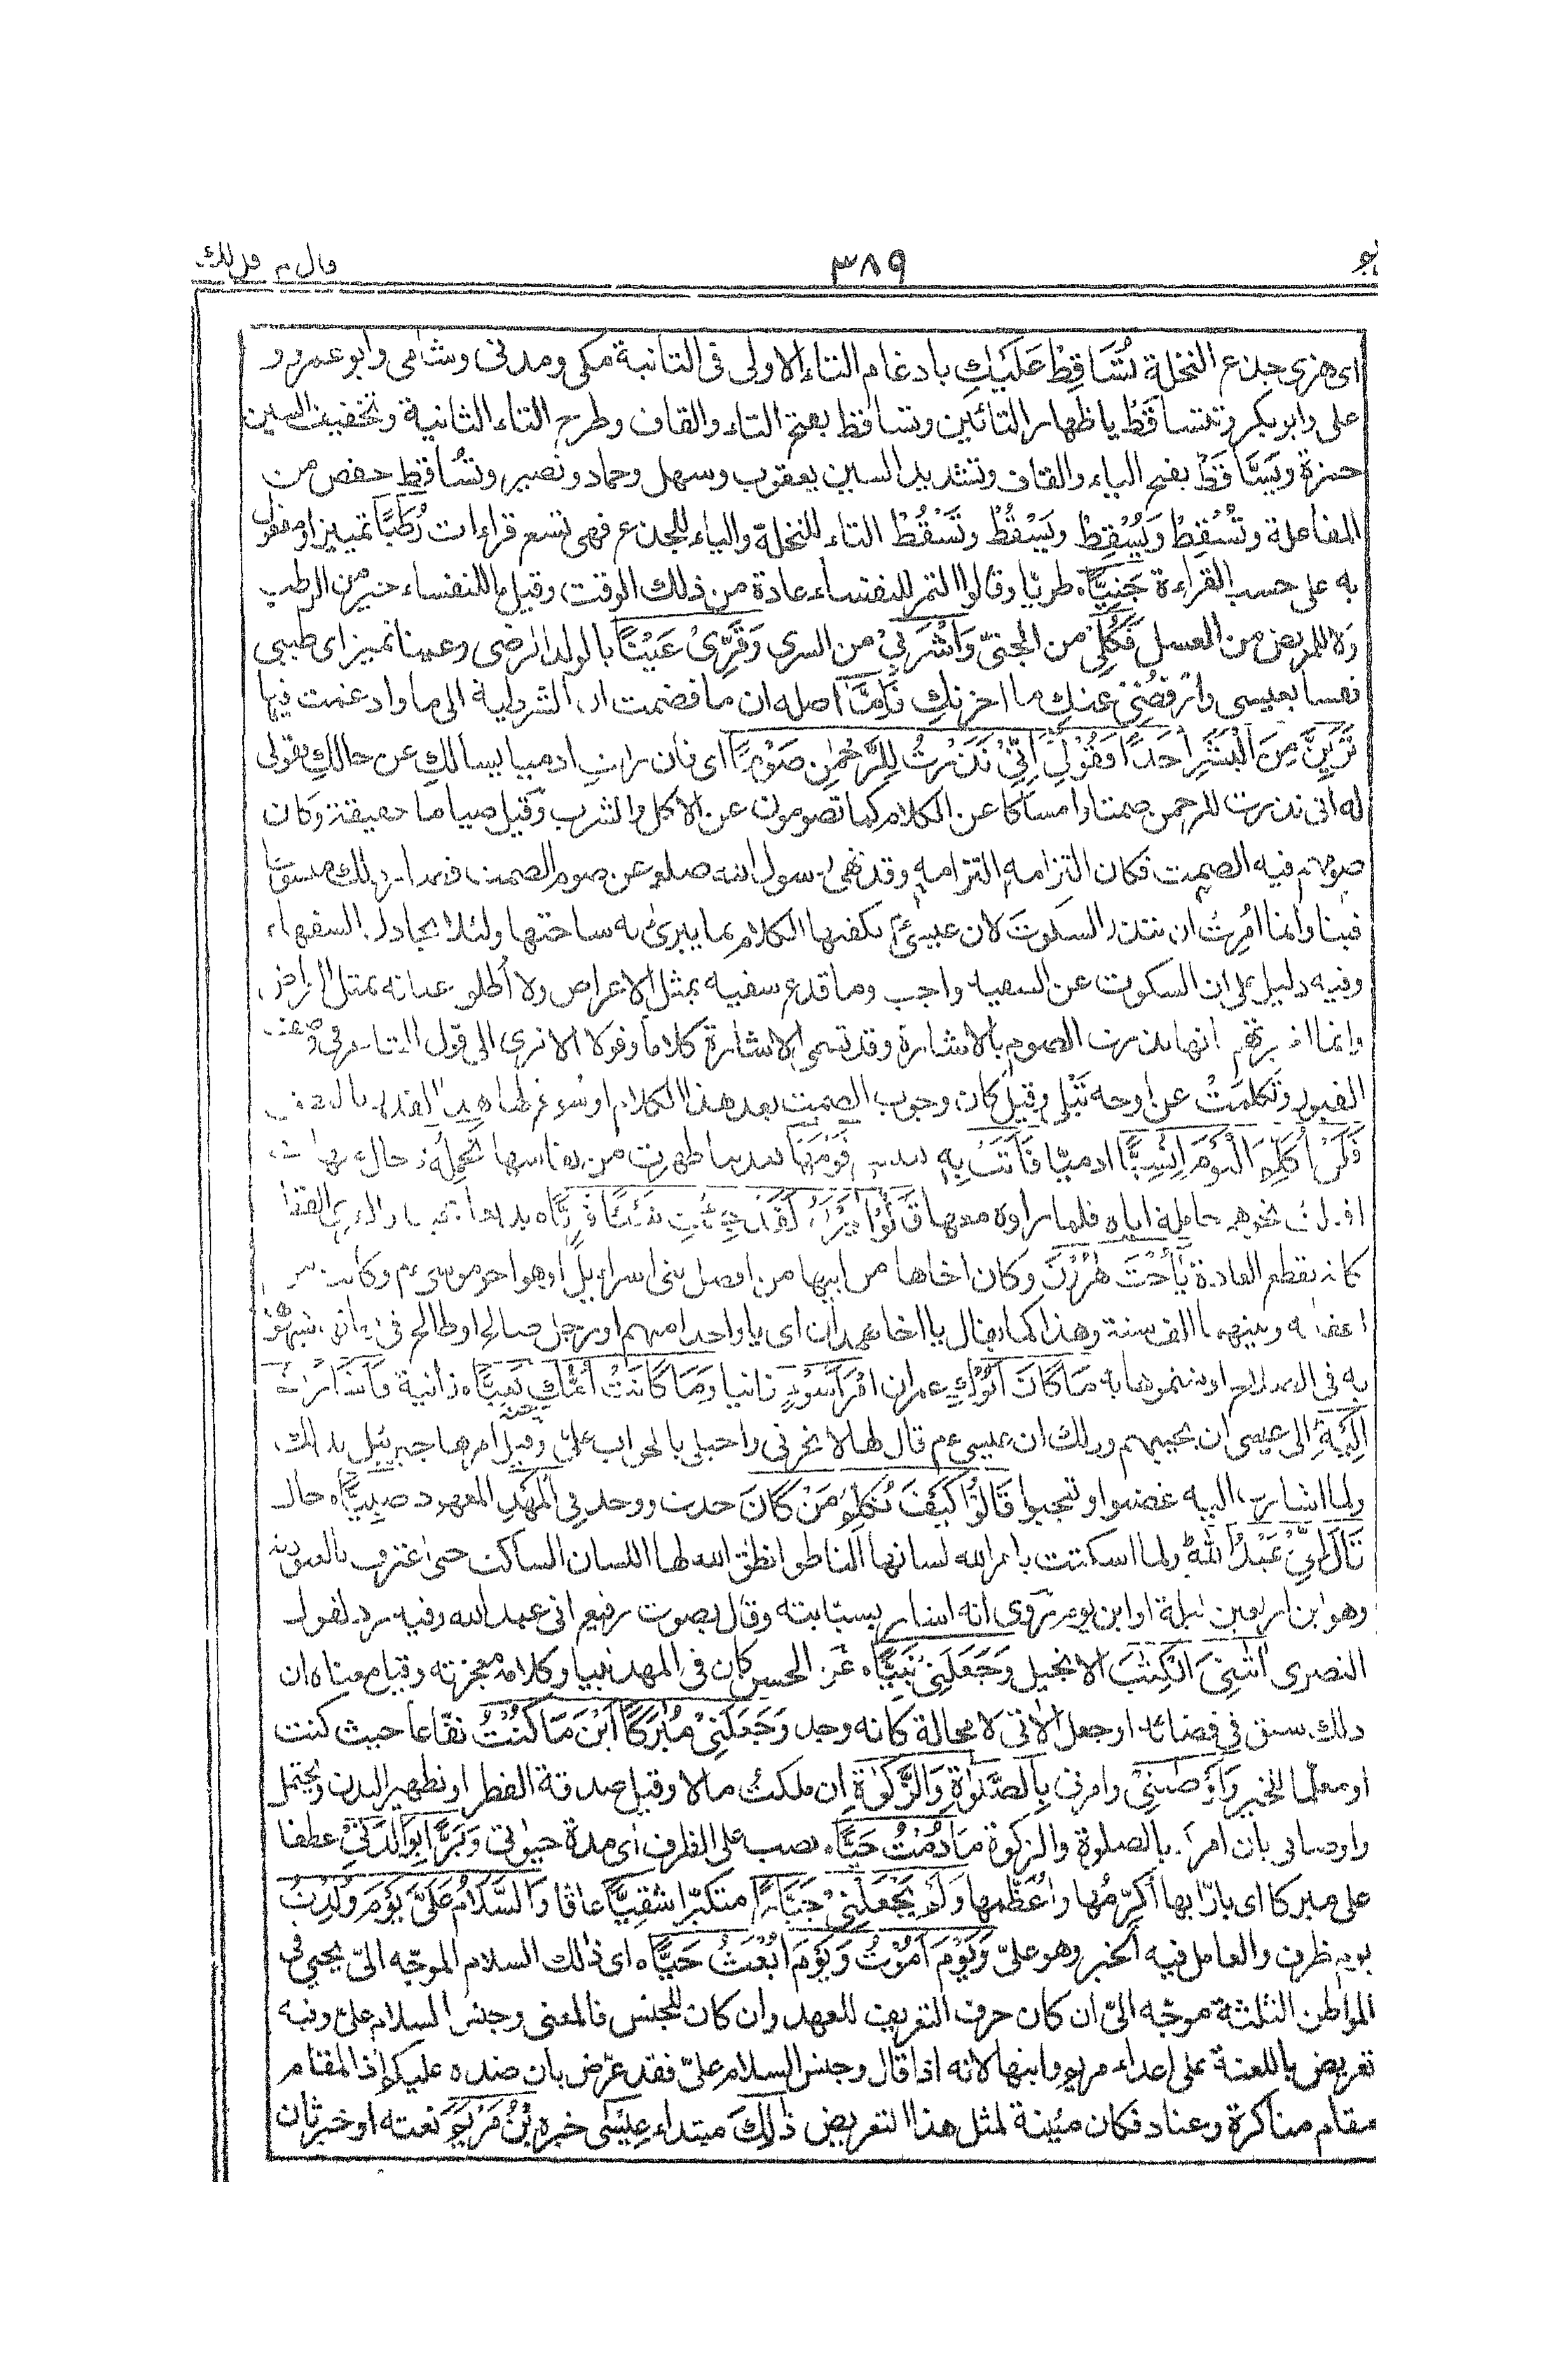 قال الم ٣٨٩
اى هزى جذع النخلة تُسَّاقِطْ عَلَيْكِ بادغام التاء الاولى فى الثانية مكى ومدنى وشامى وابو عمرو و
على وابو بكر وتتساقط باظهار التائين وتساقط بفتح التاء والقاف وطرح التاء الثانية وتخفيف السين
حمزة ويَسَّاقَطْ بفتح الياء والقاف وتشديد السين يعقوب وسهل وحماد ونصير وتُسَاقِط حفص من
المفاعلة وتُسْقِطْ وَيُسْقِطْ ويَسْقُطْ وتَسْقُطْ التاء للنخلة والياء للجذع فهى تسع قراءات رُطَبًا تمييز او مفعول
به على حسب القراءة جَنِيًّاه طريّا وقالوا التمر للنفساء عادة من ذلك الوقت وقيل ما للنفساء خير من الرطب
ولا للمريض من العسل فَكُلِىْ من الجنىّ وَاشْرَبِىْ من السرى وَقَرِّىْ عَيْنًا بالولد الرضى وعينا تمييز اى طيبى
نفسا بعيسى وارفضى عنك ما احزنكِ فَاِمَّا اصله ان ما فضمت ان الشرطية الى ما وادغمت فيها
تَرَيِنَّ مِنَ الْبَشَرِ اَحَدًا فَقُوْلِىْٓ اِنِّىْ نَذَرْتُ لِلرَّحْمٰنِ صَوْمًا اى فان رايتِ ادميا يسالكِ عن حالكِ فقولى
له انى نذرت للرحمن صمتا وامساكا عن الكلام كما تصومون عن الاكل والشرب وقيل صياما حقيقة وكان
صومهم فيه الصمت فكان التزامه التزامه وقد نهى رسول الله صلعم عن صوم الصمت فصار ذلك منسوخا
فينا وانما اُمِرتْ ان تنذر السكوتَ لان عيسىٰ يكفيها الكلام بما يبرئ به ساحتها ولئلا تجادل السفهاء
وفيه دليل على ان السكوت عن السفيه واجب وما قدع سفيه بمثل الاعراض ولا اُطلق عنانه بمثل
وانما انها نذرت الصوم بالاشارة وقد تسمى الاشارة كلاما وقولا الا ترى الى قول الشاعر فى وصف
القبور وتَكلمَتْ عن اوجه تَبْلى وقيل كان وجوب الصمت بعد هذا الكلام او سوغ لها هذا القدر بالنطق
فَلَنْ اُكَلِّمَ الْيَوْمَ اِنْسِيًّا ادميّا فَاَتَتْ بِهٖ قَوْمَهَا بعد ما طهرت من نفاسها تَحْمِلُهٗ حال
اقبلت نحوهم حاملة اياه فلما راوه معها قَالُوْا يٰمَرْيَمُ لَقَدْ جِئْتِ شَيْئًا فَرِيًّاه بديعا
كانه يقطع العادة يٰٓاُخْتَ هٰرُوْنَ وكان اخاها من ابيها من افضل بنى اسرائيل او هو اخو موسىٰ عم وكانت من
اعقابه وبينهما الف سنة وهذا كما يقال يا اخا همدان اى يا واحدا منهم او رجل صالح او طالح فى زمانها شبهوها
به فى الصلاح او شتموها به مَا كَانَ اَبُوْكِ عمران امْرَاَ سَوْءٍ زانيا وَمَا كَانَتْ اُمُّكِ حنة بَغِيًّاه زانية فَاَشَارَتْ
اِلَيْهِ الى عيسى ان يجيبهم وذلك ان عيسىٰ عم قال لها لا تحزنى واحيلى بالجواب علىّ وقيل امرها جبرئيل بذلك
ولما اشارت اليه غضبوا وتعجبوا قَالُوْا كَيْفَ نُكَلِّمُ مَنْ كَانَ حدث ووجد فِى الْمَهْدِ المعهود صَبِيًّاه حال
قَالَ اِنِّىْ عَبْدُ اللّٰهِ ولما اسكتت بامر الله لسانها الناطق انطق الله لها اللسان الساكت حتى اعترف بالعبودية
وهو ابن اربعين ليلة او ابن يوم روى انه اشار بسبابته وقال بصوت رفيع انى عبد الله وفيه رد لقول
النصرى اٰتٰىنِىَ الْكِتٰبَ الانجيل وَجَعَلَنِىْ نَبِيًّاه عن الحسن كان فى المهد نبيا وكلامه معجزته وقيل معناه ان
ذلك سبق فى قضائه او جعل الاتى لا محالة كانه وجد وَجَعَلَنِىْ مُبٰرَكًا اَيْنَ مَا كُنْتُ نفّاعا حيث كنت
او معلّما للخير وَاَوْصٰىنِىْ وامرنى بِالصَّلٰوةِ وَالزَّكٰوةِ ان ملكتُ مالا وقيل صدقة الفطر او تطهير البدن ويحتمل
واوصانى بان امركم بالصلوة والزكوة مَا دُمْتُ حَيًّاه نصب على الظرف اى مدة حيوتى وَبَرًّا بِوَالِدَتِىْ عطفا
على مبركا اى بارّا بها اُكرّمُها واُعَظّمها وَلَمْ يَجْعَلْنِىْ جَبَّارًا متكبرا شَقِيًّا عاقا وَالسَّلَامُ عَلَىَّ يَوْمَ وُلِدْتُ
يوم ظرف والعامل فيه الخبر وهو علىّ وَيَوْمَ اَمُوْتُ وَيَوْمَ اُبْعَثُ حَيًّاه اى ذلك السلام الموجّه الى يحيى فى
المواطن الثلثة موجّه الىّ ان كان حرف التعريف للعهد وان كان للجنس فالمعنى وجنس السلام علىّ وفيه
تعريض باللعنة على اعداء مريم وابنها لانه اذا قال وجنس السلام علىّ فقد عرّض بان ضده عليكم اذ المقام
مقام مناكرة وعناد فكان مئينة لمثل هذا التعريض ذٰلِكَ مبتداء عِيْسَى خبره ابْنُ مَرْيَمَ نعته او خبر ثان